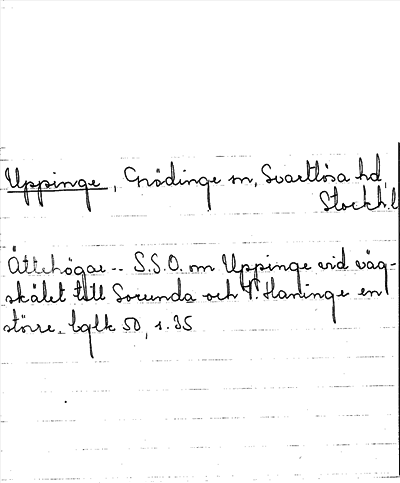 Uppinge, Grödinge sn, Svartlösa hd,
Stockh.l
Ättehögar -- S.S.O. om Uppinge vid väg-
skälet till Sorunda och V. Haninge en
större. bglk 50, s. 35